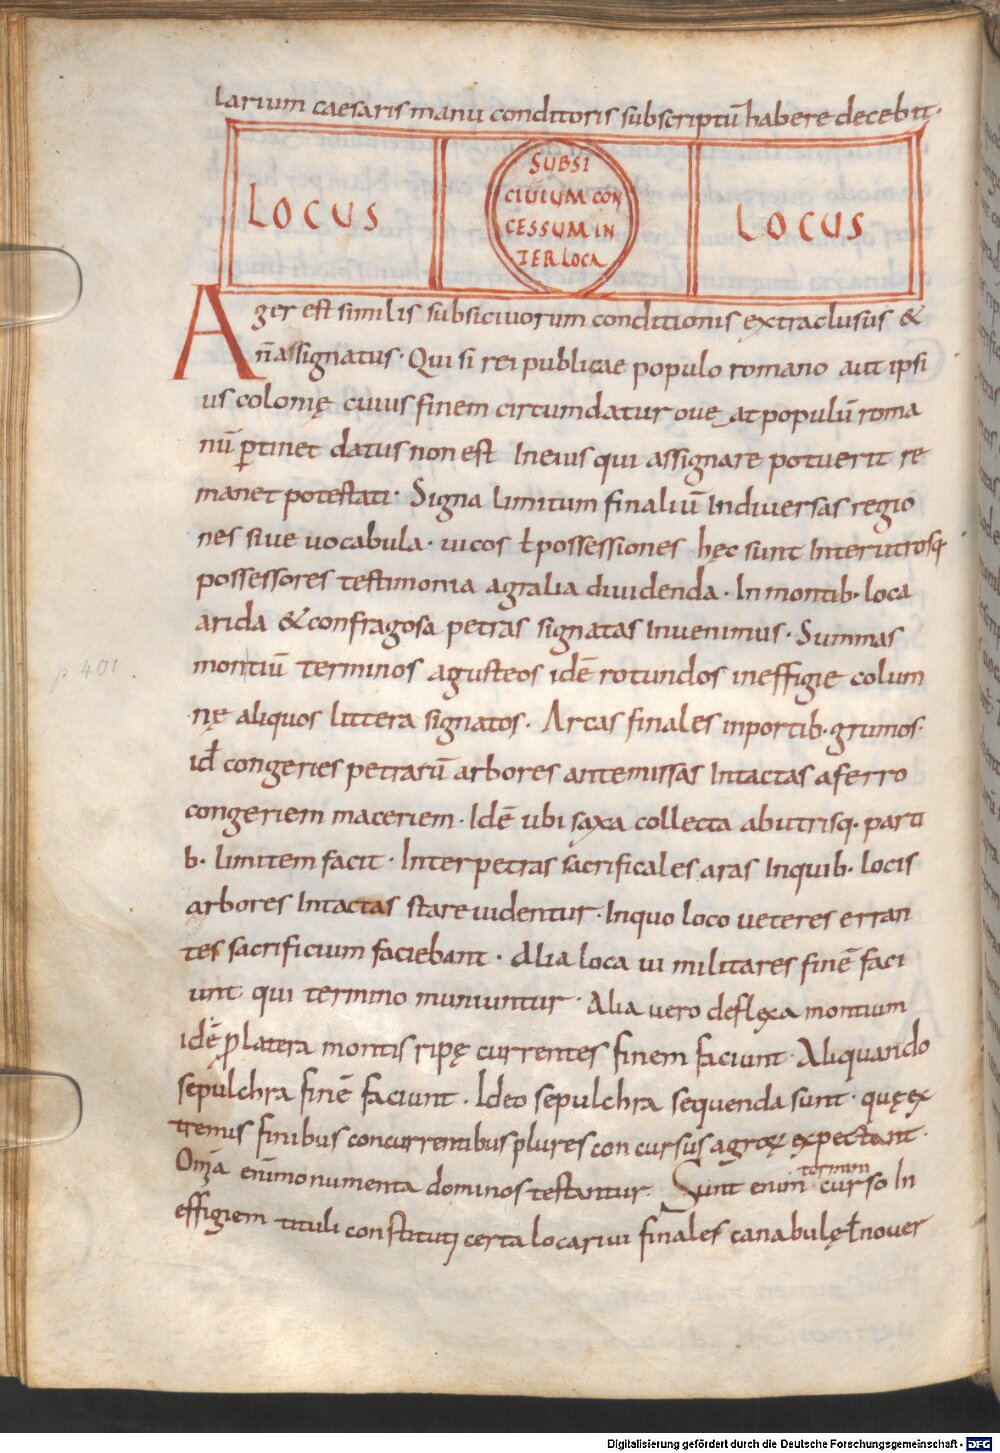 larium caesaris manu conditoris subscriptū habere decebit·
LOCUS
SUBSI
CIUIUM CON
CESSUM IN
TER LOCA
LOCUS
Ager est similis subsiciuorum conditionis extraclusus &
n̄ assignatus· Qui si rei publicae populo romano aut ipsi
us colonię cuius finem circumdatur oue at populū roma
nū ꝑtinet datus non est In eius qui assignare potuerit re
manet potestati· Signa limitum finaliū In diuersas regio
nes siue uocabula· uicos ł possessiones hęc sunt Inter utrosq·
possessores testimonia agralia diuidenda· In montib· loca
arida & confragosa petras signatas Inuenimus· Summas
montiū terminos agusteos idē rotundos in effigie colum
nę aliquos littera signatos· Arcas finales in portib· grumos·
id congeries petrarū arbores antemissas Intactas a ferro
congeriem maceriem· Idē ubi saxa collecta ab utrisq· parti
b· limitem facit· Inter petras sacrificales aras In quib· locis
arbores Intactas stare uidentur· In quo loco ueteres erran
tes sacrificium faciebant· Alia loca ui militares finē faci
unt qui termino muniuntur· Alia uero deflexa montium
idē ꝑ latera montis ripę currentes finem faciunt· Aliquando
sepulchra finē faciunt· Ideo sepulchra sequenda sunt· quę ex
tremis finibus concurrentibus plures concursus agroꝝ expectant·
Om̄a enī monumenta dominos testantur· Sunt enim termin curso In
effigiem tituli constituti certa loca riui finales canabulę ł nouer
p 401
Digitalisierung gefördert durch die Deutsche Forschungsgemeinschaft - DFG